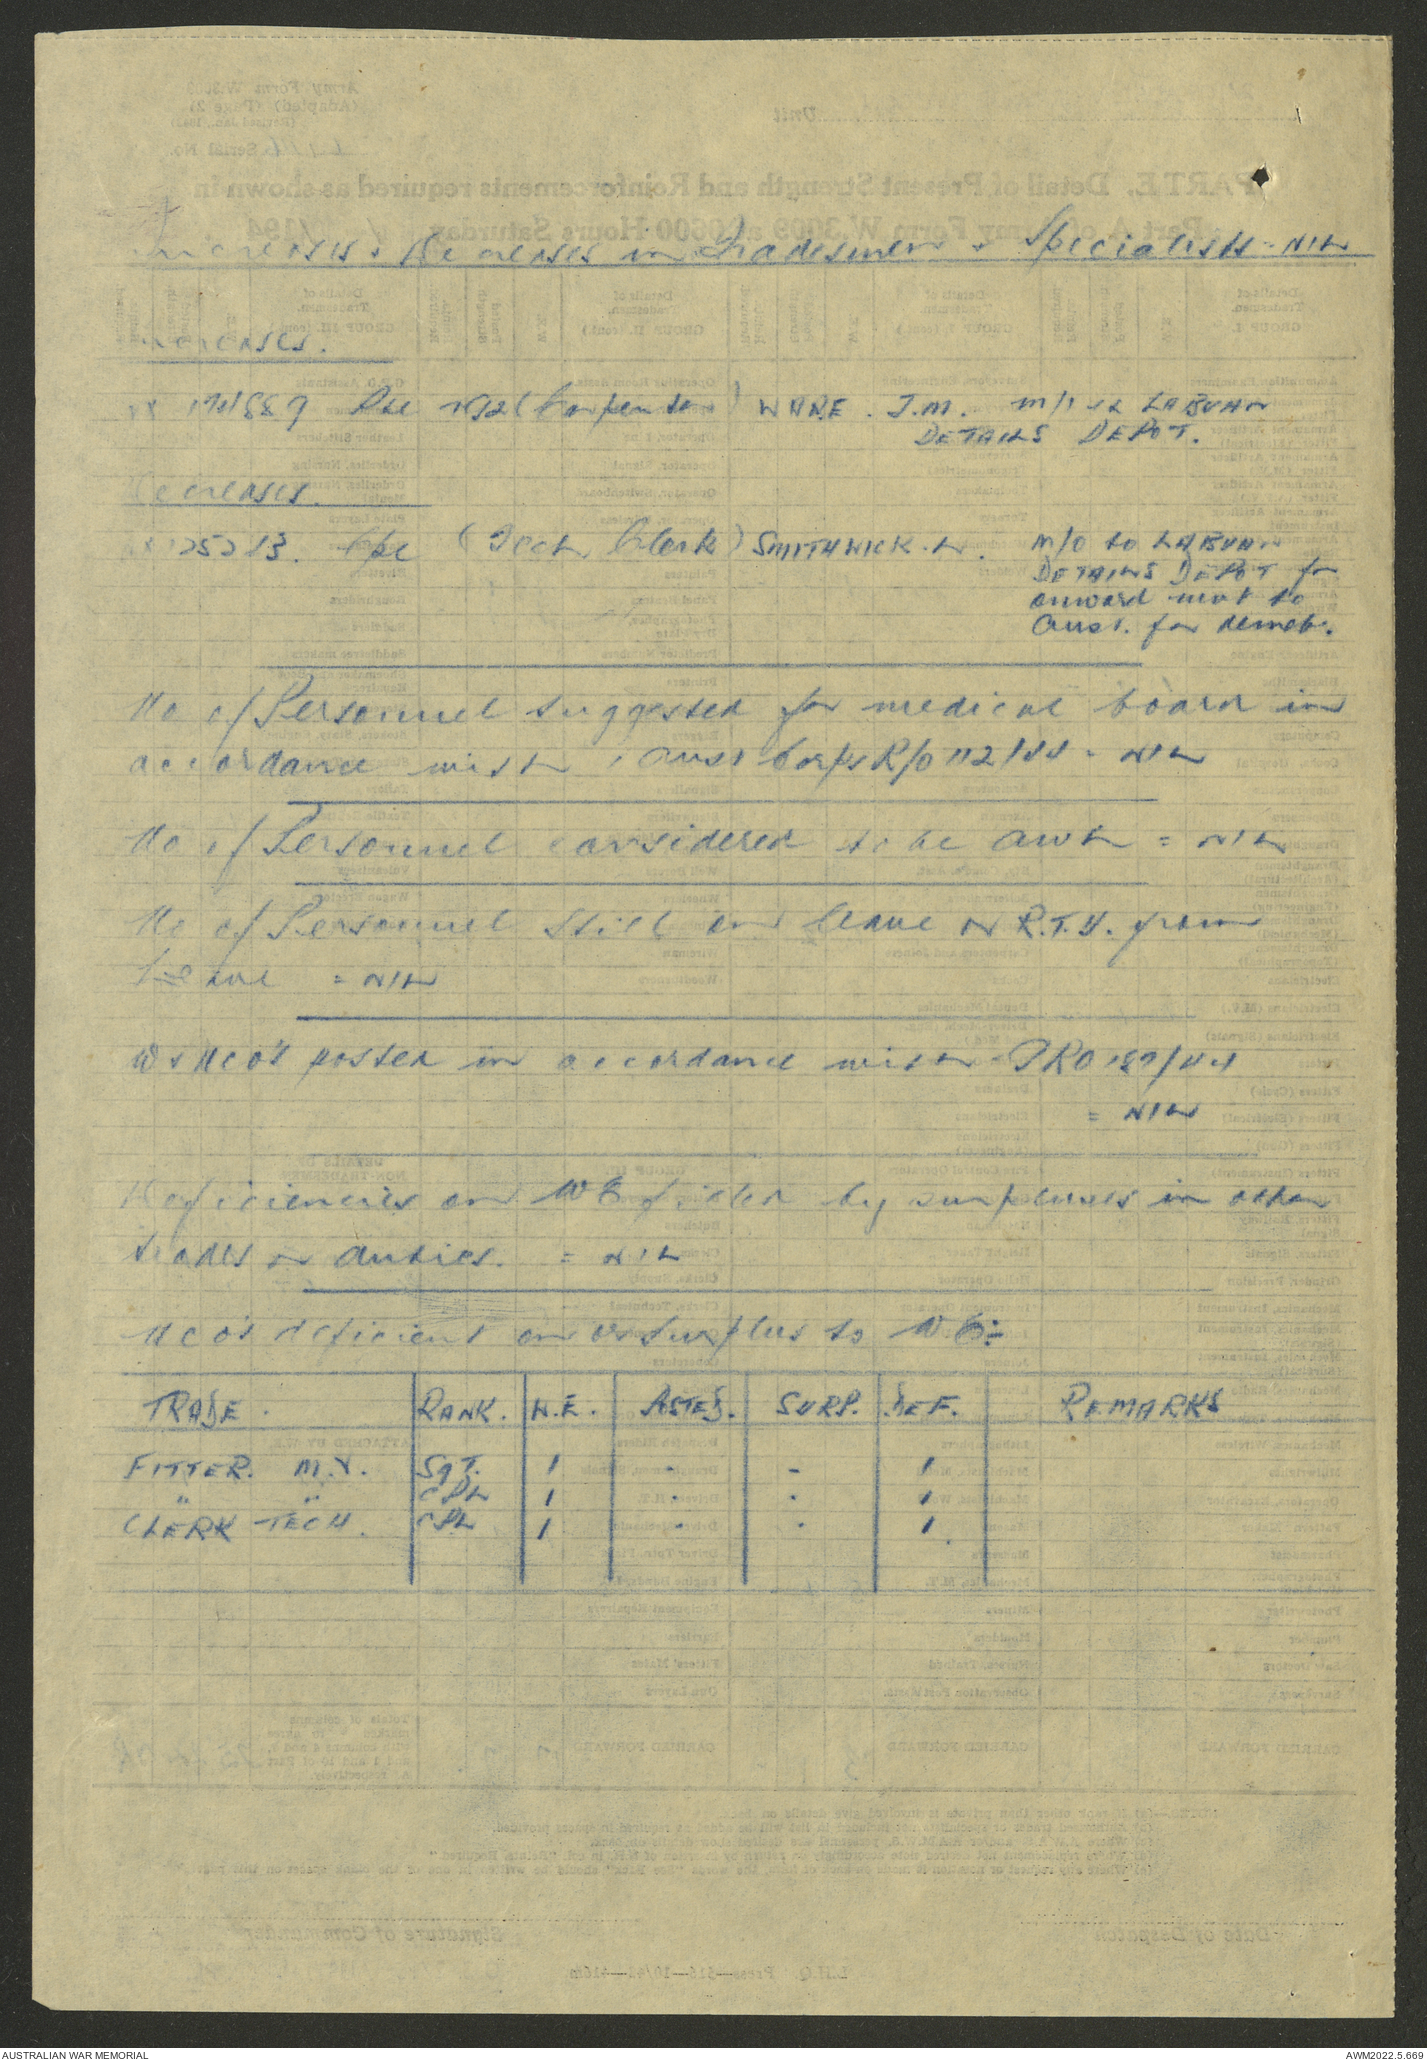 Increases & Decreases in Tradesmen & Specialists = NIL
Increases.
174889 Pte (Carpenter) WARE. J.M. m/i ex LABUAN
DETAILS DEPOT.
Decreases.
125213. Cpl (Tech. Clerk) SMITHWICK. L. m/o to LABUAN
DETAILS DEPOT for
onward mvt to
Aust. for demob.
No of Personnel suggested for medical board in
accordance with 1 Aust Corps R/O 112/44 = NIL
No of Personnel considered to be AWL = NIL
No of Personnel still on leave or R.T.U. from
Leave = NIL
W & NCO's posted in accordance with GRO 189/44
= NIL
Deficiencies on WE filled by surpluses in other
trades or duties. = NIL
NCO's deficient on or surplus to WE:-
TRADE. RANK. W.E. POSTED. SURP. DEF. REMARKS
FITTER. M.V. SGT. 1 - - 1
" " CPL 1 - - 1
CLERK TECH. CPL 1 - - 1
AUSTRALIAN WAR MEMORIAL AWM2022.5.669